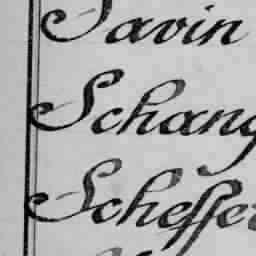 Savin
Schang
Scheffer